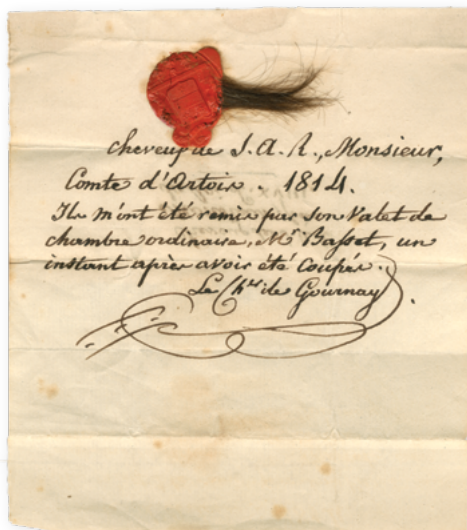 Cheveux de S. A. R., Monsieur,
Comte d'Artois. 1814.
Ils m'ont été remis par son Valet de
chambre ordinaire, Mr Basset, un
instant après avoir été Coupés.
Le Cher de Gournay.